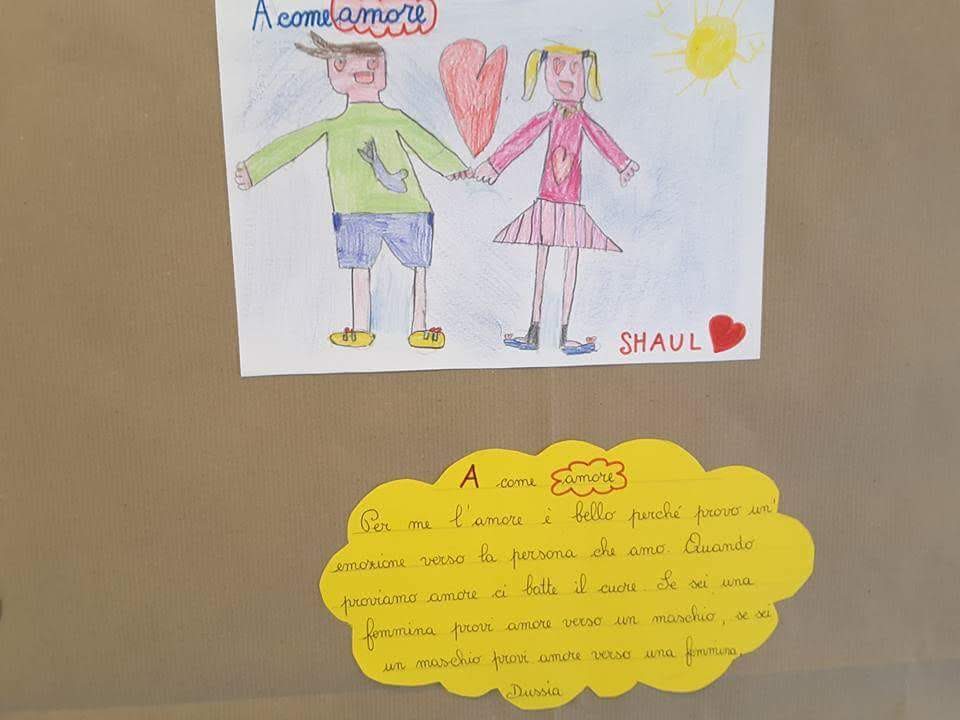 A come amore
SHAUL
A come amore
Per me l'amore è bello perché provo un'
emozione verso la persona che amo. Quando
proviamo amore ci batte il cuore. Se sei una
femmina provi amore verso un maschio, se sei
un maschio provi amore verso una femmina.
Dussia